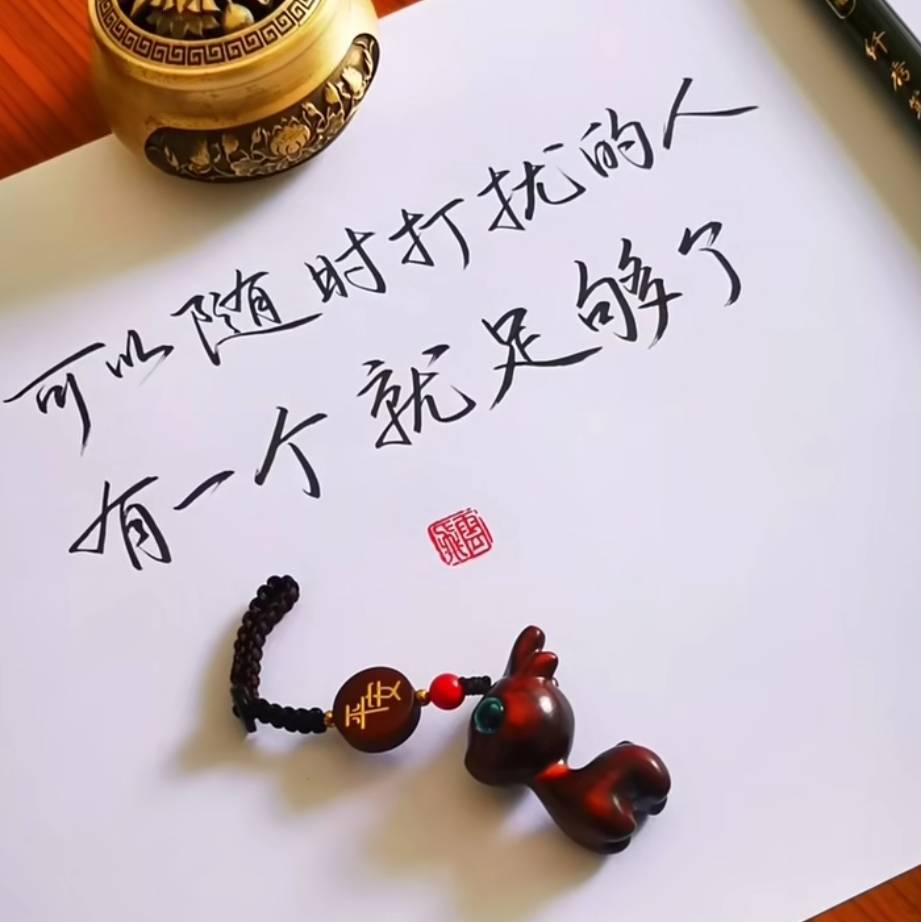 可以随时打扰的人
有一个就足够了